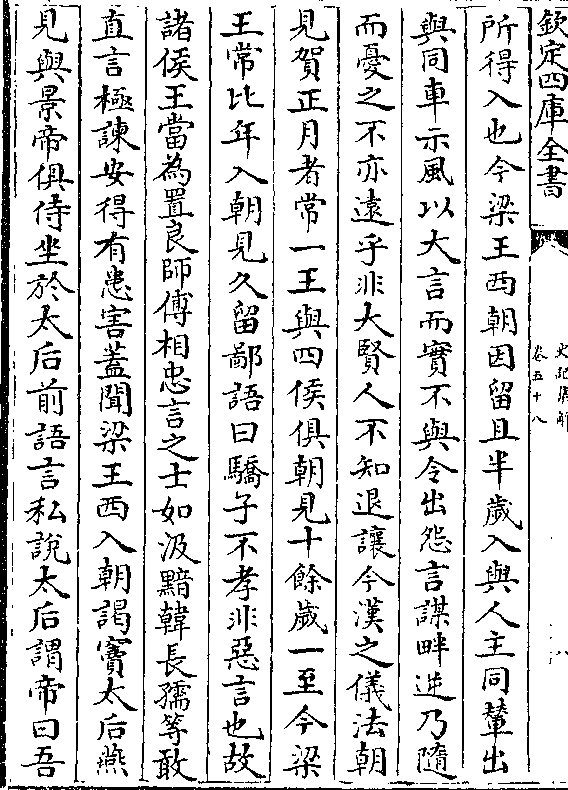 欽定四庫全書
史記集解
卷五十八
八
所得入也今梁王西朝因留且半歲入與人主同輦出
與同車示風以大言而實不與令出怨言謀畔逆乃隨
而憂之不亦遠乎非大賢人不知退讓今漢之儀法朝
見賀正月者常一王與四侯俱朝見十餘歲一至今梁
王常比年入朝見久留鄙語曰驕子不孝非惡言也故
諸侯王當為置良師傅相忠言之士如汲黯韓長孺等敢
直言極諫安得有患害蓋聞梁王西入朝謁竇太后燕
見與景帝俱侍坐於太后前語言私說太后謂帝曰吾